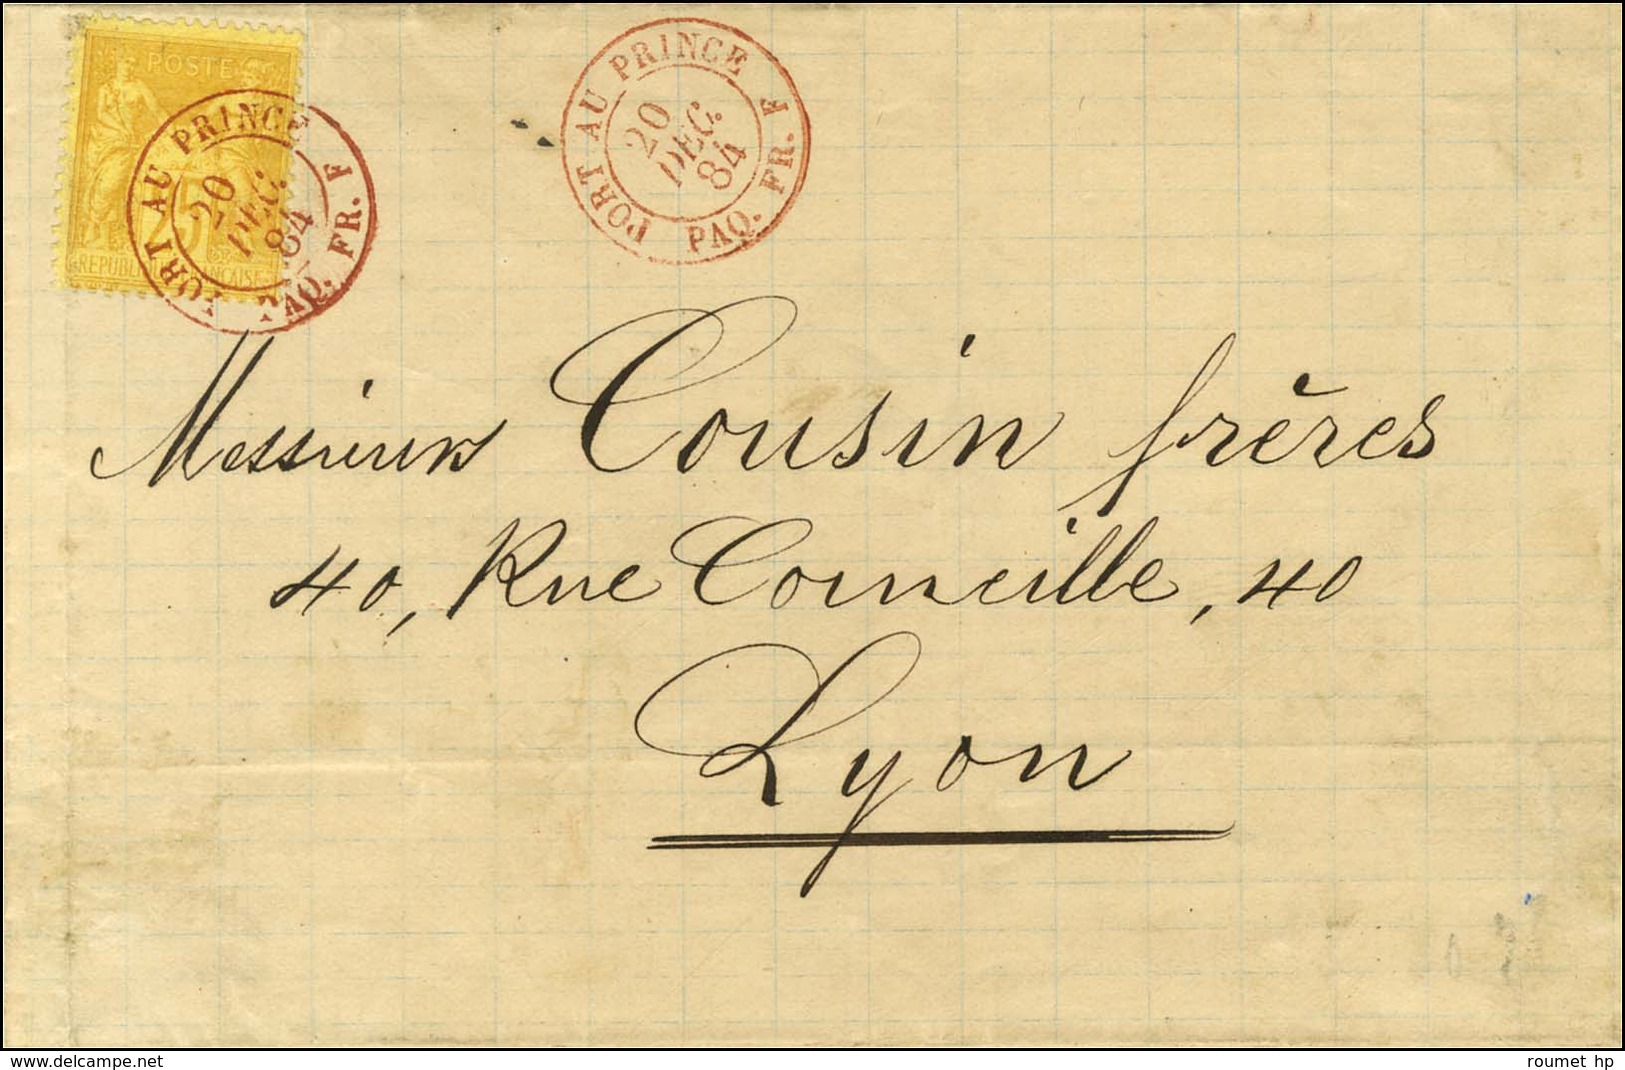 POSTE
25
REPUBLIQUE FRANÇAISE
PORT AU PRINCE
20
DEC.
84
PAQ. FR. F
PORT AU PRINCE
20
DEC.
84
PAQ. FR. F
Messieurs Cousin frères
40, Rue Corneille, 40
Lyon
www.delcampe.net
roumet hp